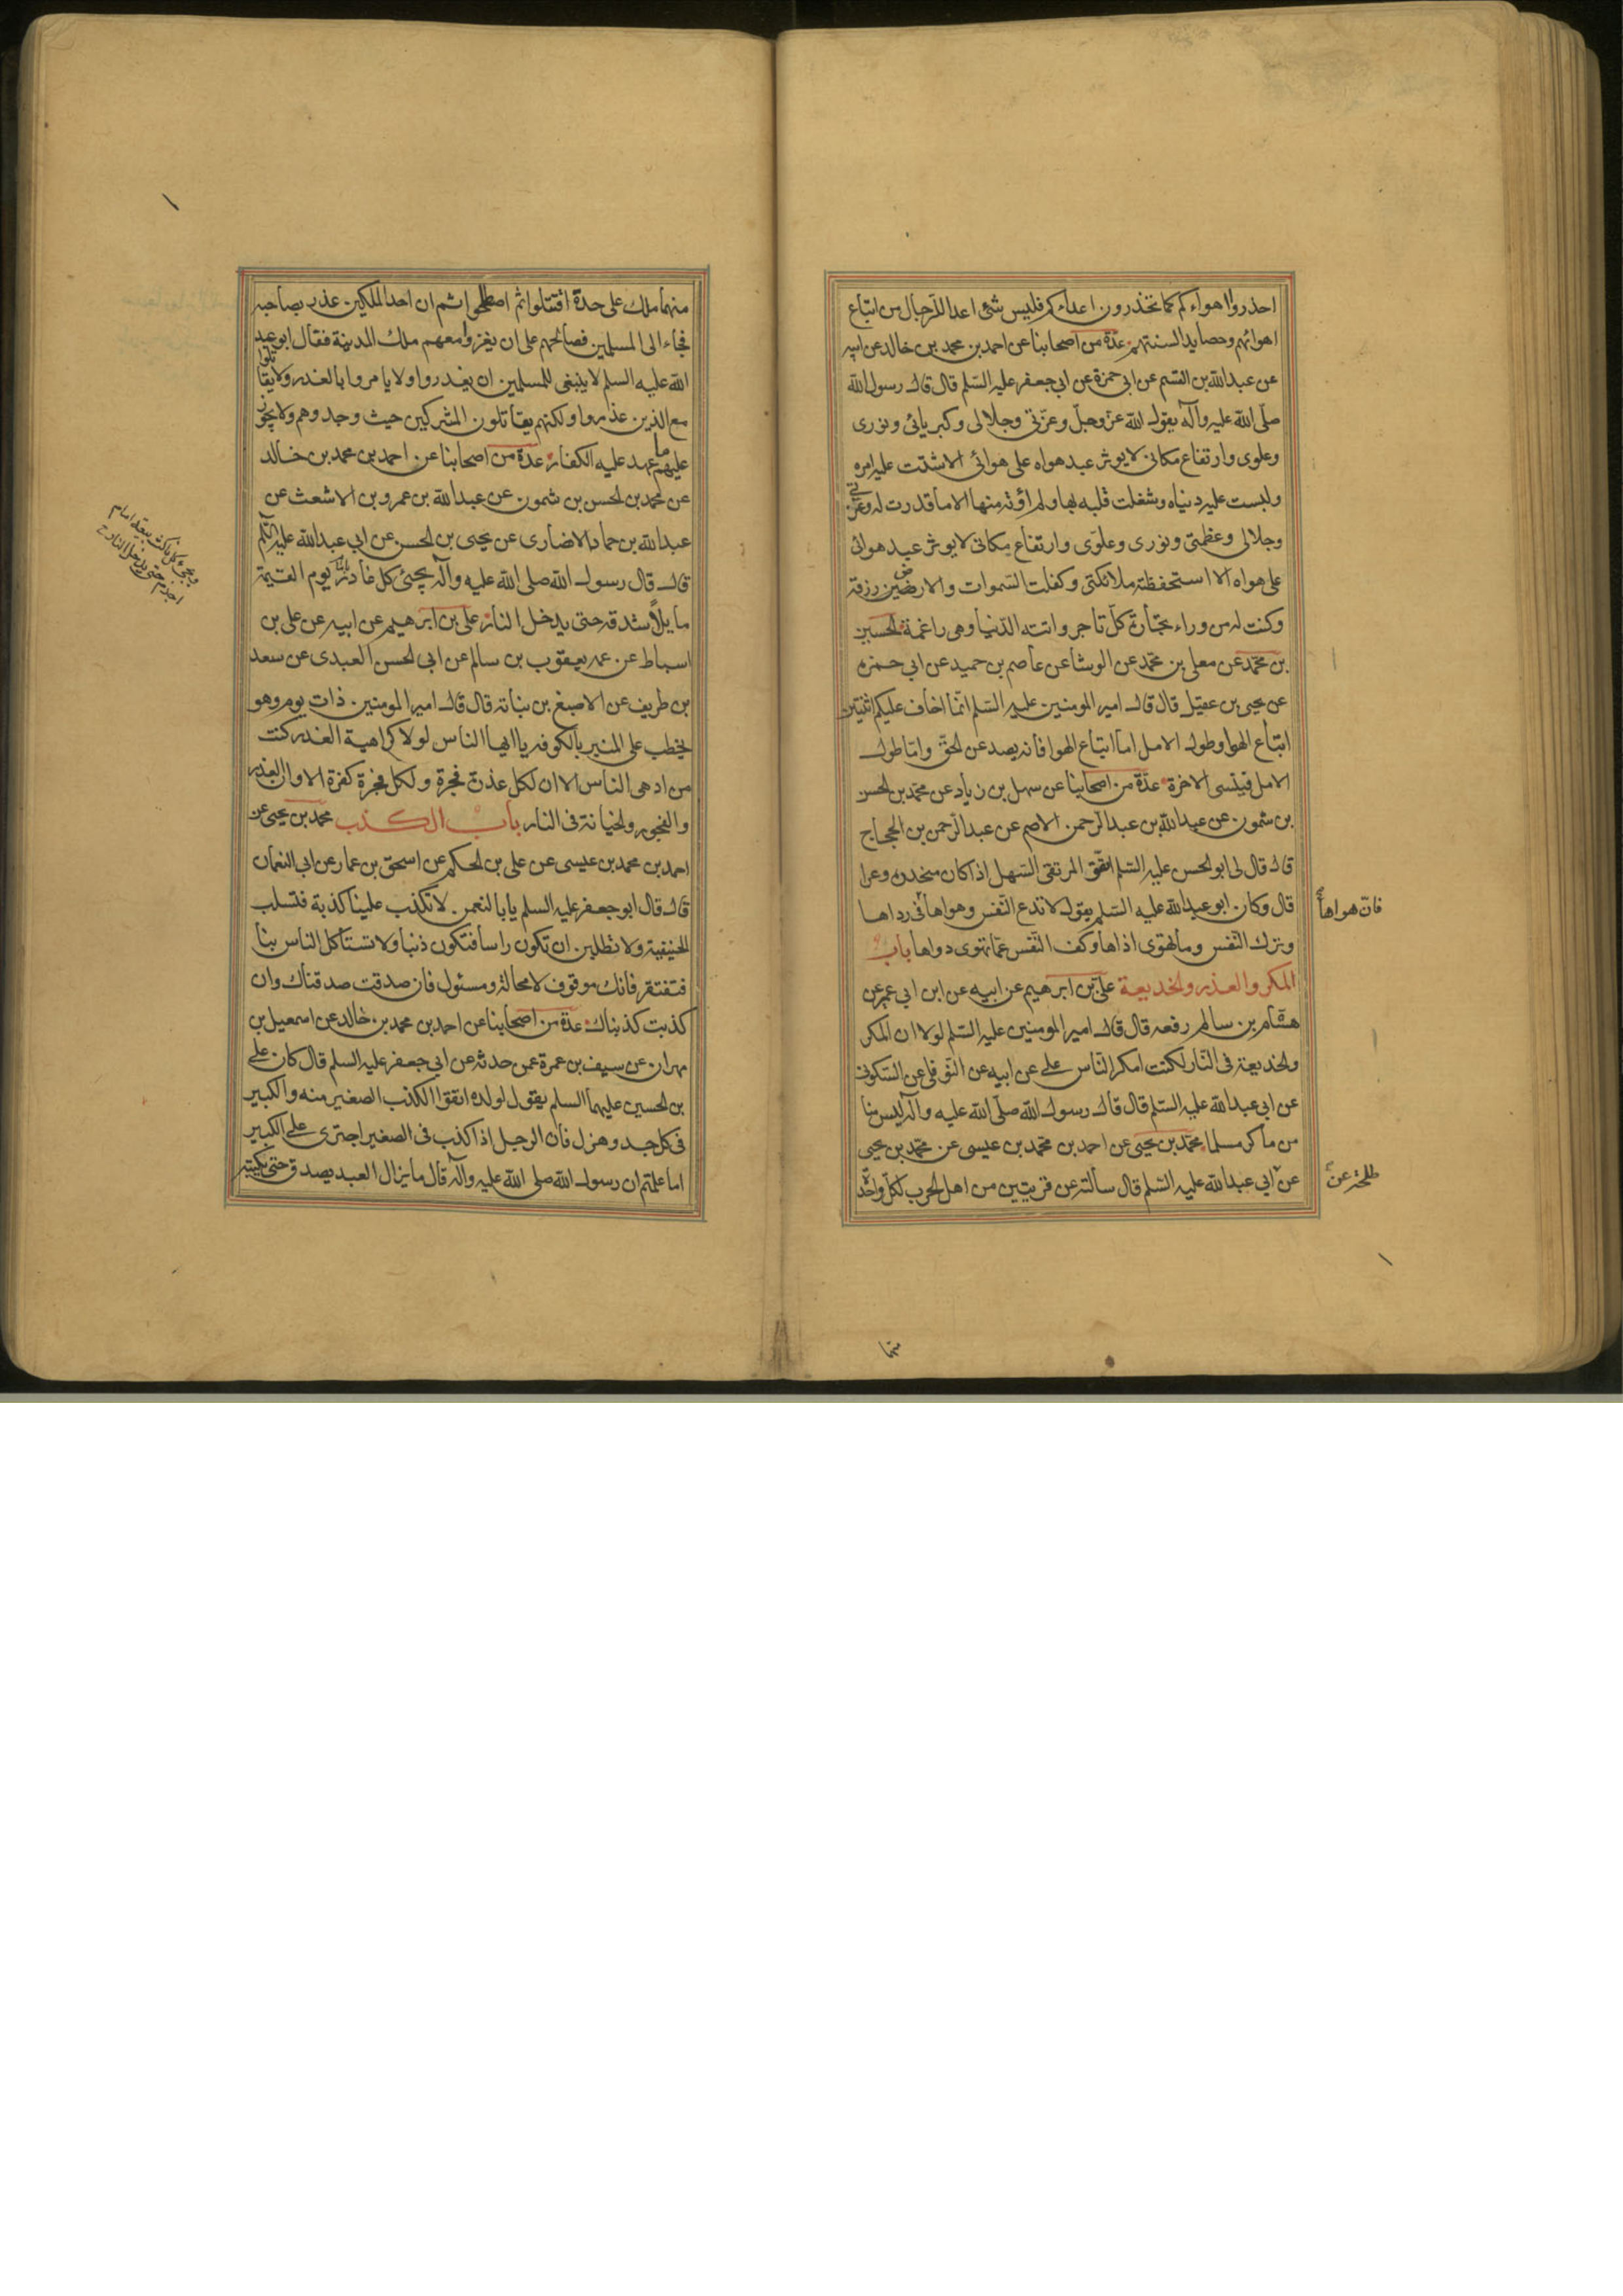 احذروا اهواءكم كما تحذرون اعداءكم فليس شئ اعدا للرجال من اتباع
اهوائهم وحصايد السنتهم عدة من اصحابنا عن احمد بن محمد بن خالد عن ابيه
عن عبد الله بن القسم عن ابي حمزة عن ابي جعفر عليه السلم قال قال رسول الله
صلى الله عليه وآله يقول الله عز وجل وعزتي وجلالي وكبريائي ونوري
وعلوي وارتفاع مكاني لا يوثر عبد هواه على هوائي الا شتت عليه امره
ولبست عليه دنياه وشغلت قلبه بها ولم اؤته منها الا ما قدرت له وعزتي
وجلالي وعظمتي ونوري وعلوي وارتفاع مكاني لا يوثر عبد هوائي
على هواه الا استحفظته ملائكتي وكفلت السموات والارضين رزقه
وكنت له من وراء تجارة كل تاجر واتته الدنيا وهي راغمة الحسين
بن محمد عن معلى بن محمد عن الوشا عن عاصم بن حميد عن ابي حمزه
عن يحيى بن عقيل قال قال امير المومنين عليه السلم انما اخاف عليكم اثنتين
اتباع الهوا وطول الامل اما اتباع الهوا فانه يصد عن الحق واما طول
الامل فينسى الاخرة عدة من اصحابنا عن سهل بن زياد عن محمد بن الحسن
بن شمون عن عبد الله بن عبد الرحمن الاصم عن عبد الرحمن بن الحجاج
قال قال لي ابو الحسن عليه السلم اتق المرتقى السهل اذا كان منحدره وعرا
قال وكان ابو عبد الله عليه السلم يقول لا تدع النفس وهواها في رداها
فان هواها
وترك النفس وما تهوى اذاها وكف النفس عما تهوى دواها باب
المكر والغدر والخديعة علي بن ابرهيم عن ابيه عن ابن ابي عمير عن
هشام بن سالم رفعه قال قال امير المومنين عليه السلم لولا ان المكر
والخديعة في النار لكنت امكر الناس علي عن ابيه عن النوفلي عن السكوني
عن ابي عبد الله عليه السلم قال قال رسول الله صلى الله عليه وآله ليس منا
من ماكر مسلما محمد بن يحيى عن احمد بن محمد بن عيسى عن محمد بن يحيى
عن ابي عبد الله عليه السلم قال سألته عن قريتين من اهل الحرب لكل واحدة
طلحة عن
منهما
منهما ملك على حدة اقتتلوا ثم اصطلحوا ثم ان احد الملكين غدر بصاحبه
فجاء الى المسلمين فصالحهم على ان يغزوا معهم ملك المدينة فقال ابو عبد
الله عليه السلم لا ينبغي للمسلمين ان يغدروا ولا يامروا بالغدر ولا يقاتلوا
مع الذين غدروا ولكنهم يقاتلون المشركين حيث وجدوهم ولا يجوز
عليهم ما عهد عليه الكفار عدة من اصحابنا عن احمد بن محمد بن خالد
عن محمد بن الحسن بن شمون عن عبد الله بن عمرو بن الاشعث عن
عبد الله بن حماد الانصاري عن يحيى بن الحسن عن ابي عبد الله عليه السلم
قال قال رسول الله صلى الله عليه وآله يجئ كل غادر يوم القيمة
مايلا شدقه حتى يدخل النار علي بن ابرهيم عن ابيه عن علي بن
اسباط عن عمه يعقوب بن سالم عن ابي الحسن العبدي عن سعد
بن طريف عن الاصبغ بن نباته قال قال امير المومنين ذات يوم وهو
يخطب على المنبر بالكوفه يا ايها الناس لولا كراهية الغدر كنت
من ادهى الناس الا ان لكل غدرة فجرة ولكل فجرة كفرة الا وان الغدر
والفجور والخيانة في النار باب الكذب محمد بن يحيى عن
احمد بن محمد بن عيسى عن علي بن الحكم عن اسحق بن عمار عن ابي النعمان
قال قال ابو جعفر عليه السلم يابا النعمن لا تكذب علينا كذبة فتسلب
الحنيفية ولا تطلبن ان تكون راسا فتكون ذنبا ولا تستأكل الناس بنا
فتفتقر فانك موقوف لا محالة ومسئول فان صدقت صدقناك وان
كذبت كذبناك عدة من اصحابنا عن احمد بن محمد بن خالد عن اسمعيل بن
مهران عن سيف بن عمرة عمن حدثه عن ابي جعفر عليه السلم قال كان علي
بن الحسين عليهما السلم يقول لولده اتقوا الكذب الصغير منه والكبير
في كل جد وهزل فان الرجل اذا كذب في الصغير اجترى على الكبير
اما علمتم ان رسول الله صلى الله عليه وآله قال ما يزال العبد يصدق حتى يكتبه
ويجئ كل ناكث بيعة امام
اجذم حتى يدخل النار